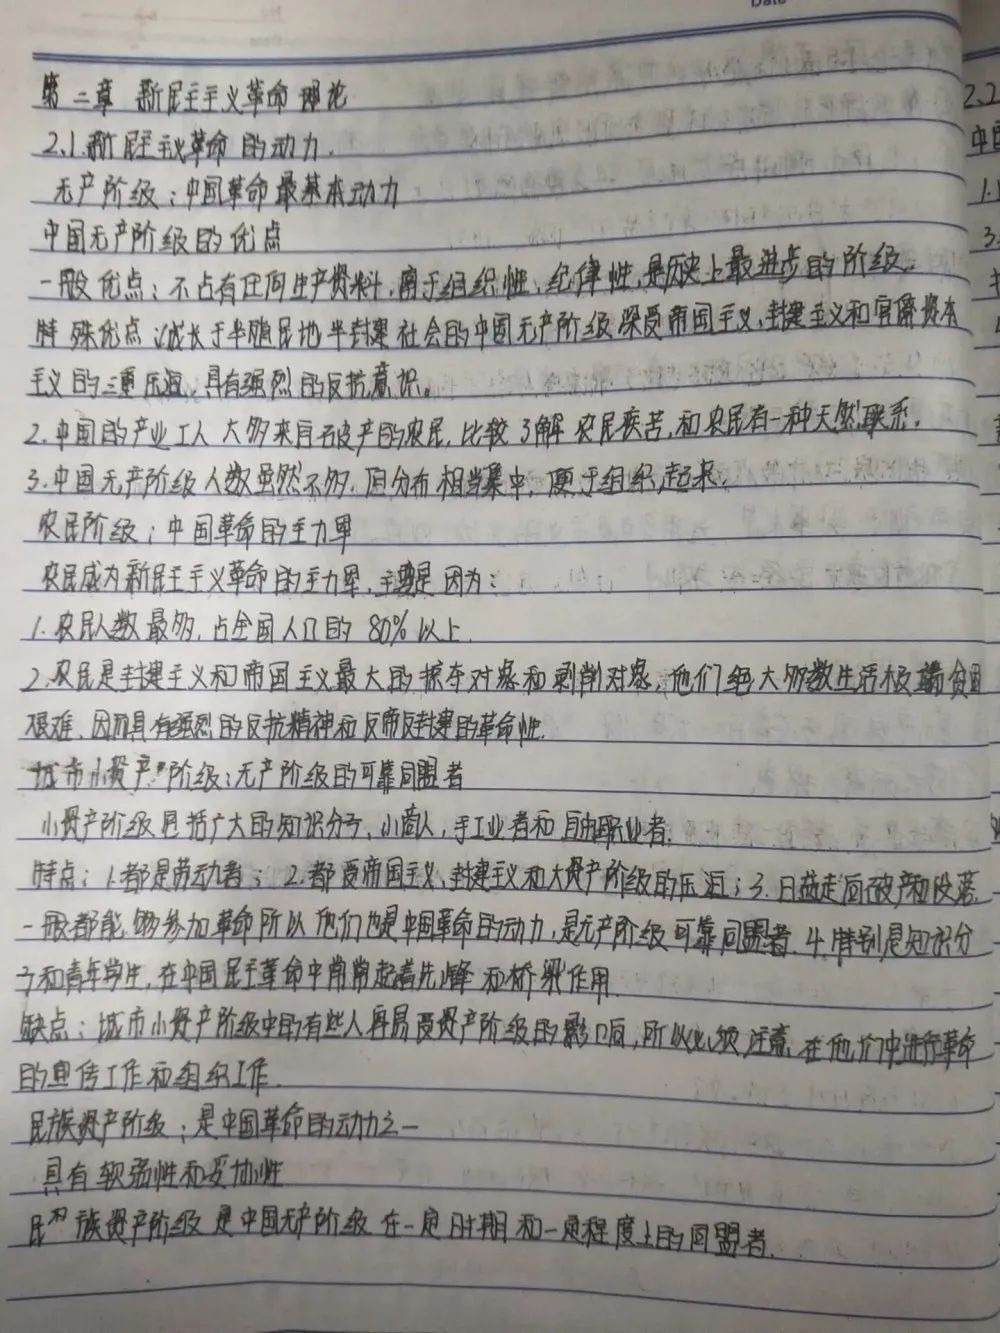 Date
第二章 新民主主义革命理论
2.1.新民主主义革命的动力.
无产阶级:中国革命最基本动力
中国无产阶级的优点
一般优点:不占有任何生产资料,富于组织性、纪律性,是历史上最进步的阶级。
特殊优点:成长于半殖民地半封建社会的中国无产阶级深受帝国主义、封建主义和官僚资本
主义的三重压迫,具有强烈的反抗意识。
2.中国的产业工人大多来自破产的农民,比较了解农民疾苦,和农民有一种天然联系.
3.中国无产阶级人数虽然不多,但分布相当集中,便于组织起来.
农民阶级:中国革命的主力军
农民成为新民主主义革命的主力军,主要是因为:
1.农民人数最多,占全国人口的80%以上.
2.农民是封建主义和帝国主义最大的掠夺对象和剥削对象,他们绝大多数生活极端贫困
艰难,因而具有强烈的反抗精神和反帝反封建的革命性.
城市小资产阶级:无产阶级的可靠同盟者
小资产阶级包括广大的知识分子,小商人,手工业者和自由职业者.
特点:1.都是劳动者;2.都受帝国主义、封建主义和大资产阶级的压迫;3.日益走向破产和没落.
一般都能够参加革命所以他们也是中国革命的动力,是无产阶级可靠同盟者.4.特别是知识分
子和青年学生,在中国民主革命中常常起着先锋和桥梁作用.
缺点:城市小资产阶级中的有些人容易受资产阶级的影响,所以必须注意在他们中进行革命
的宣传工作和组织工作.
民族资产阶级:是中国革命的动力之一
具有软弱性和妥协性
民族资产阶级是中国无产阶级在一定时期和一定程度上的同盟者.
2.2
中国
1.
3.